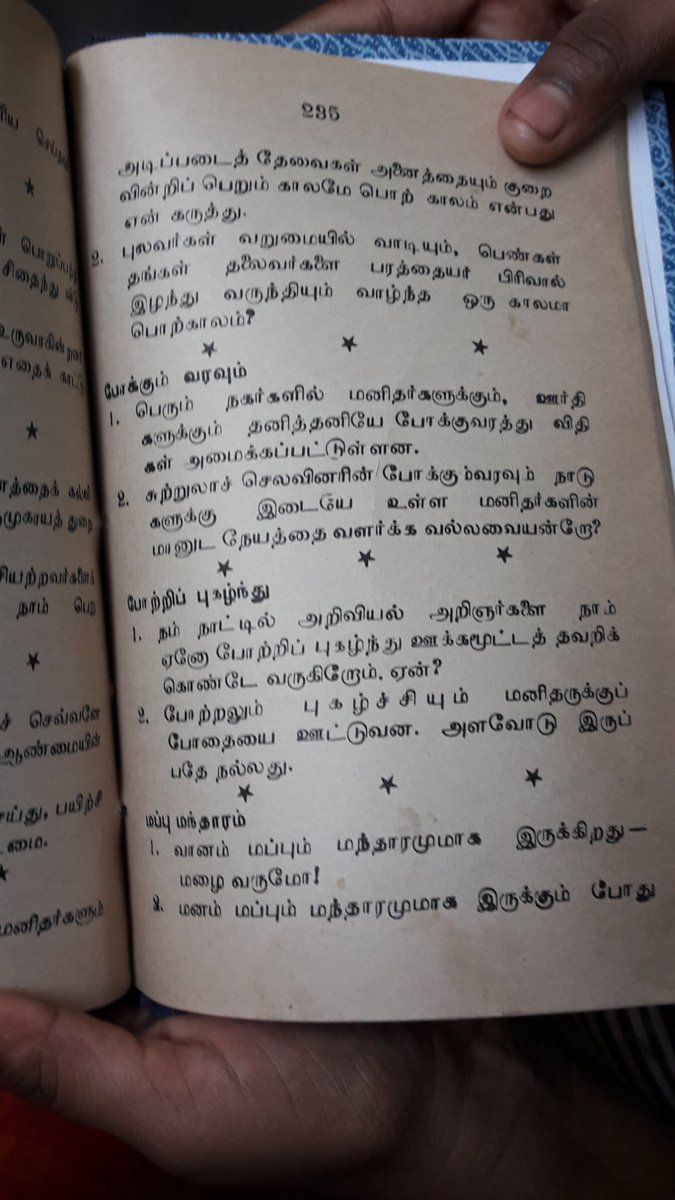 235
அடிப்படைத் தேவைகள் அனைத்தையும் குறை
வின்றிப் பெறும் காலமே பொற் காலம் என்பது
என் கருத்து.
2. புலவர்கள் வறுமையில் வாடியும், பெண்கள்
தங்கள் தலைவர்களை பரத்தையர் பிரிவால்
இழந்து வருந்தியும் வாழ்ந்த ஒரு காலமா
பொற்காலம்?
★ ★ ★
போக்கும் வரவும்
1. பெரும் நகர்களில் மனிதர்களுக்கும், ஊர்தி
களுக்கும் தனித்தனியே போக்குவரத்து விதி
கள் அமைக்கப்பட்டுள்ளன.
2. சுற்றுலாச் செலவினரின் போக்கும்வரவும் நாடு
களுக்கு இடையே உள்ள மனிதர்களின்
மானுட நேயத்தை வளர்க்க வல்லவையன்றோ?
★ ★ ★
போற்றிப் புகழ்ந்து
1. நம் நாட்டில் அறிவியல் அறிஞர்களை நாம்
ஏனோ போற்றிப் புகழ்ந்து ஊக்கமூட்டத் தவறிக்
கொண்டே வருகிறோம். ஏன்?
2. போற்றலும் புகழ்ச்சியும் மனிதருக்குப்
போதையை ஊட்டுவன. அளவோடு இருப்
பதே நல்லது.
★ ★ ★
மப்பு மந்தாரம்
1. வானம் மப்பும் மந்தாரமுமாக இருக்கிறது—
மழை வருமோ!
2. மனம் மப்பும் மந்தாரமுமாக இருக்கும் போது